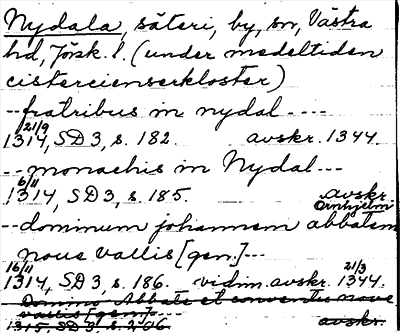 Nydala, säteri, by, sn, Västra
hd, Jönk. l. (under medeltiden
cistercienserkloster)
-- fratribus in nydal ----
21/9
1314, SD 3, s. 182. avskr. 1344.
-- monachis in Nydal ---
6/11
1314, SD 3, s. 185. avskr.
Örnhjelm
-- dominum johannem abbatem
noue vallis [gen.] ---
16/11 21/3
1314, SD 3, s. 186. vidim. avskr. 1344.
Domino Abbati et conventui noue
vallis [gen.] ---
1315, SD 3, s. 206 avskr.